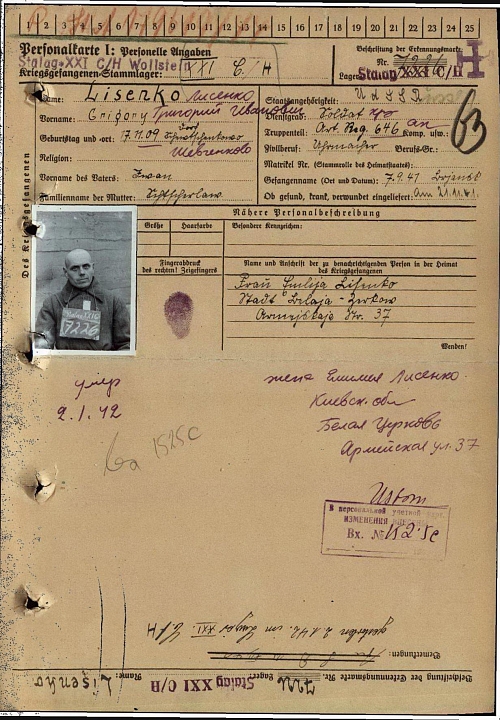 1 2 3 4 5 6 7 8 9 10 11 12 13 14 15 16 17 18 19 20 21 22 23 24 25
Personalkarte I: Personelle Angaben
Stalag XXI C/H Wollstein
Kriegsgefangenen-Stammlager: XXI C/H
Beschriftung der Erkennungsmarke
Nr. 7226
Lager: Stalag XXI C/H
Des Kriegsgefangenen
Name: Lisenko Лисенко
Vorname: Grigory Григорий Иванович
Geburtstag und -ort: 17.11.09
Шевченково
Religion:
Vorname des Vaters: Iwan
Familienname der Mutter:
Staatsangehörigkeit: UdSSR
Dienstgrad: Soldat
Truppenteil: Art. Reg. 646 Komp. usw.:
Zivilberuf: Uhrmacher Berufs-Gr.:
Matrikel Nr. (Stammrolle des Heimatstaates):
Gefangennahme (Ort und Datum): 7.9.41
Ob gesund, krank, verwundet eingeliefert:
63
Nähere Personalbeschreibung
Größe
Haarfarbe
Besondere Kennzeichen:
Fingerabdruck
des rechten! Zeigefingers
Name und Anschrift der zu benachrichtigenden Person in der Heimat
des Kriegsgefangenen
Frau Emilija Lisenko
Stadt Belaja-Zerkow
Armejskaja Str. 37
Wenden!
7226
умер
2.1.42
жена Емилия Лисенко
Киевск. обл
Белая Церковь
Армейская ул. 37
1525с
В персональной учетной карт.
ИЗМЕНЕНИЯ
Вх. № 1525с
gestorben 2.1.42. im Lager XXI C/H
Bemerkungen:
Beschriftung der Erkennungsmarke Nr. 7226 Lager: Stalag XXI C/H
Name: Lisenko